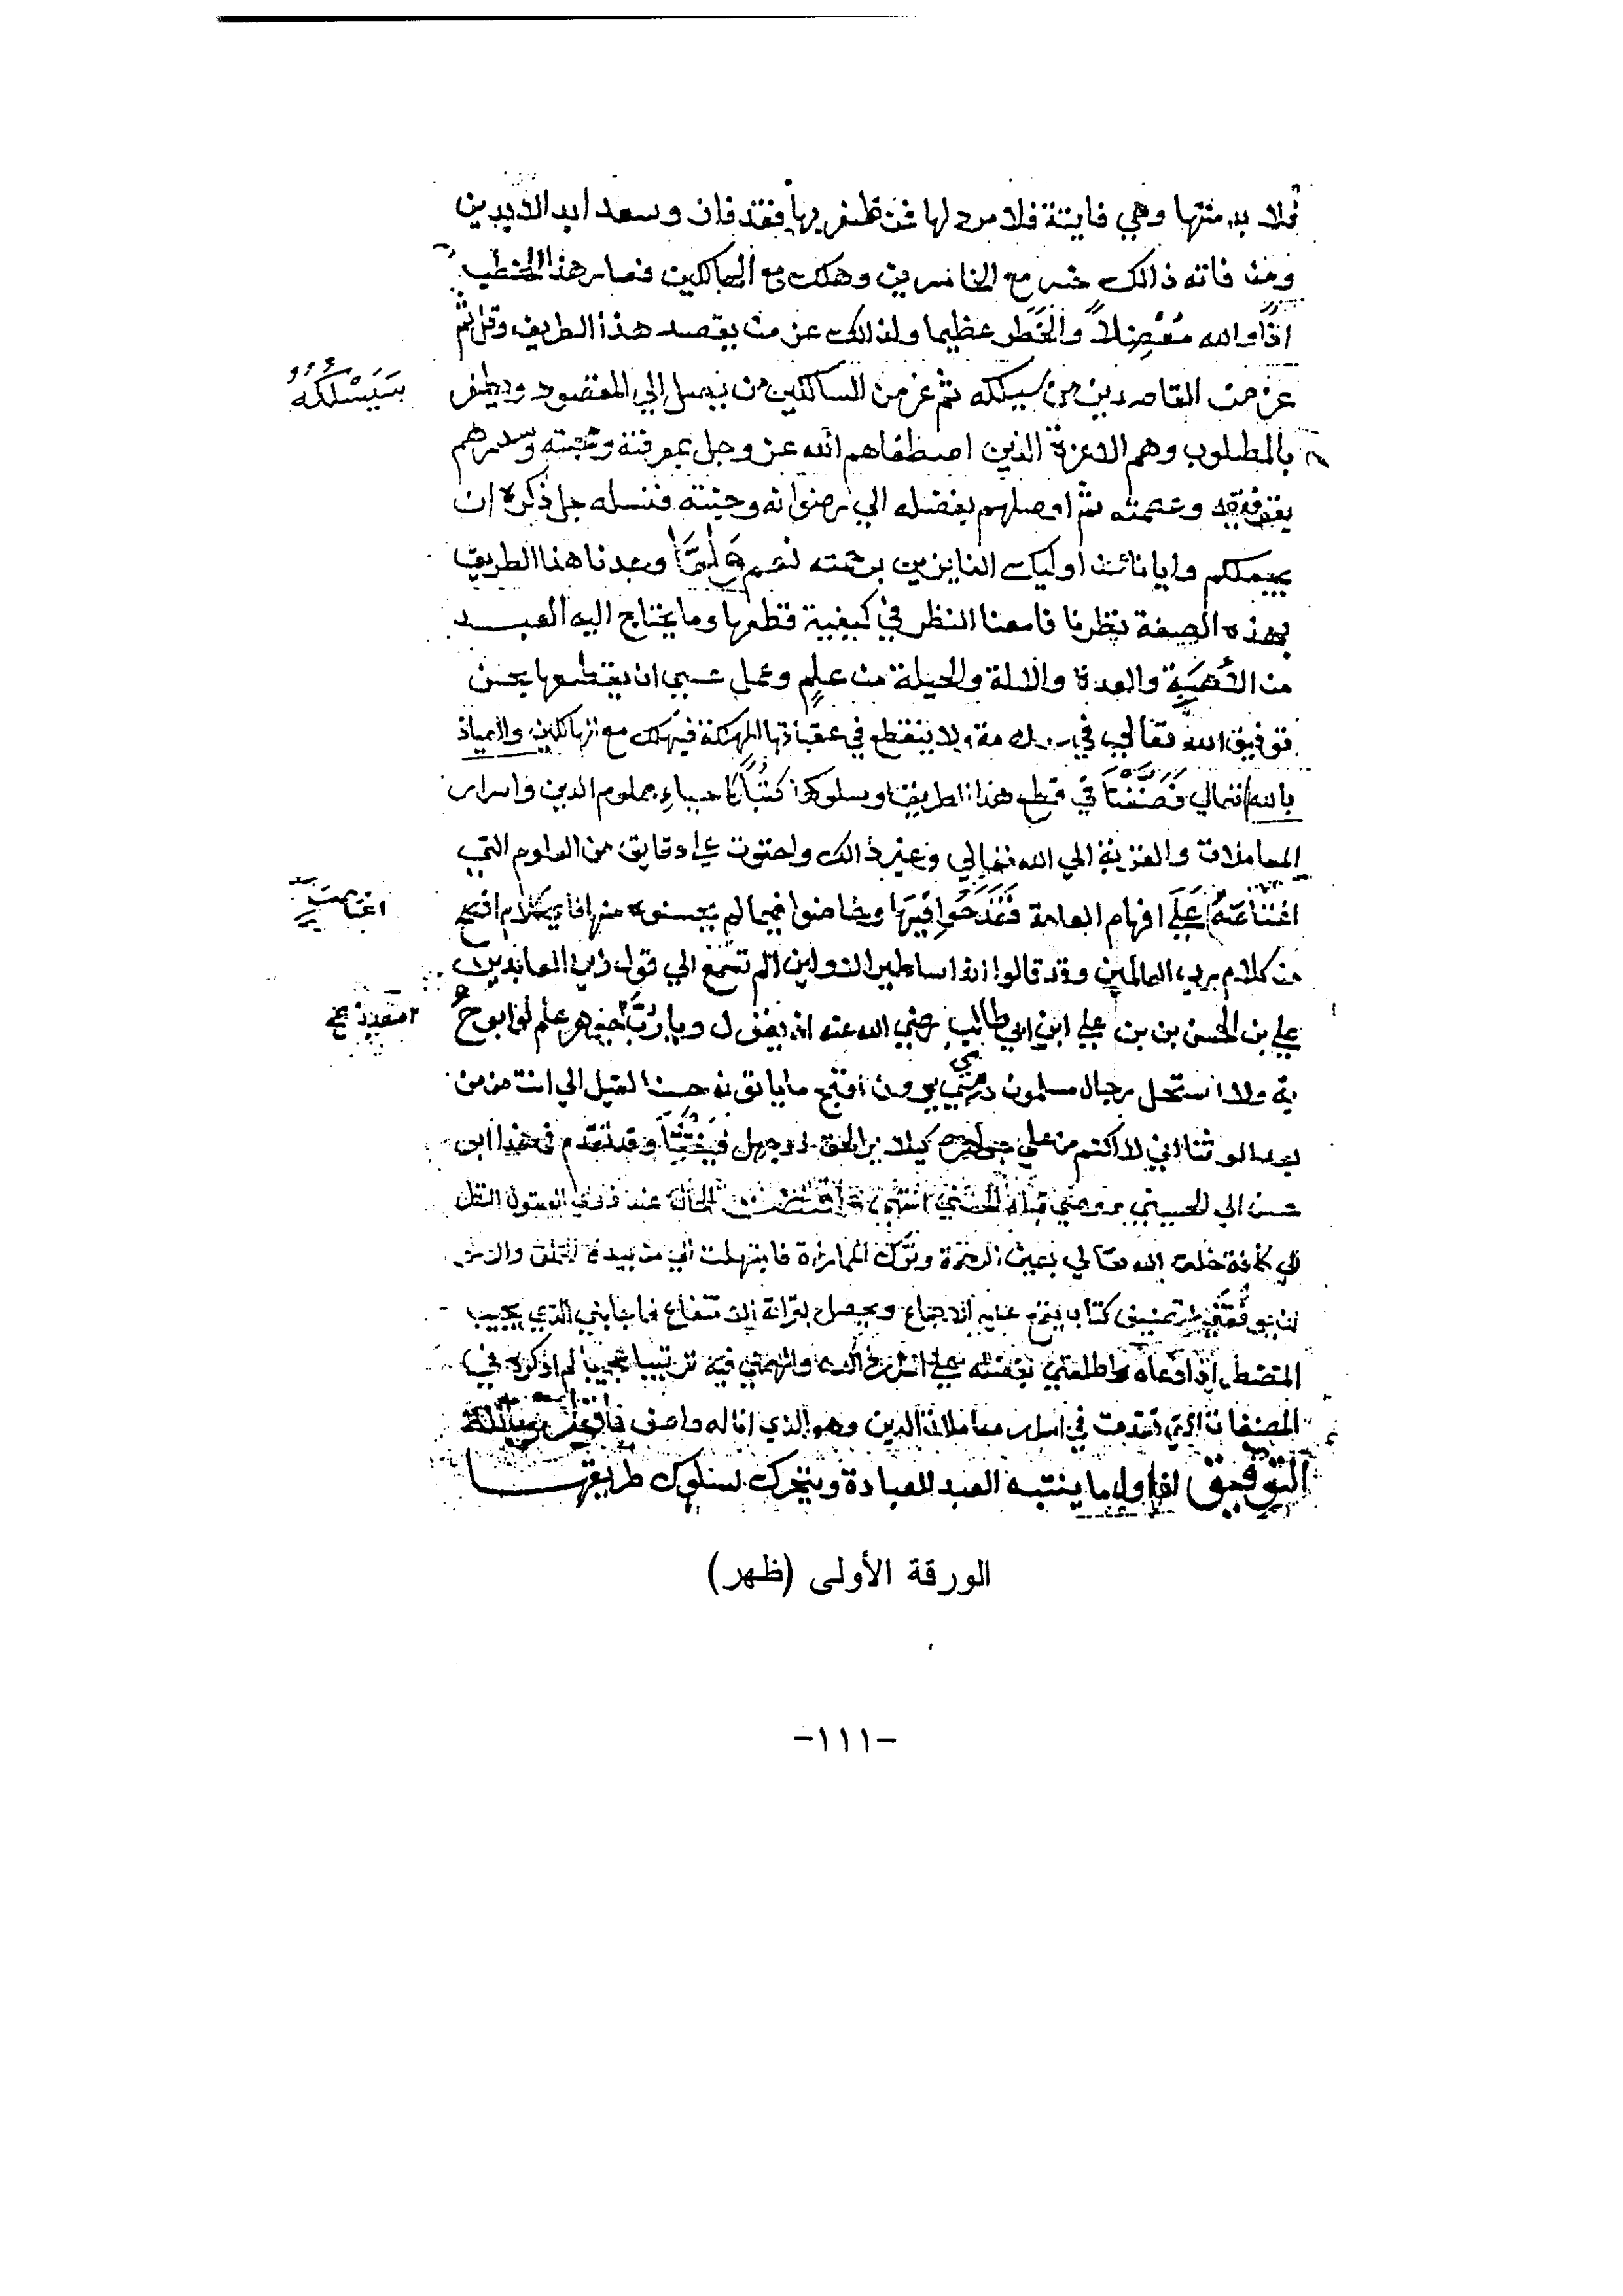 فلا بد منها وهي فايتة فلا مرد لها فمن ظفر بها فقد فاز وسعد ابد الابدين
ومن فاته ذالك خسر مع الخاسرين وهلك مع الهالكين فصار هذا الخطب
اذًا والله مُعْضِلاً والخَطَر عظيما ولذالك عز من يقصد هذا الطريق وقل ثم
عز من القاصدين من يسلكه ثم عز من السالكين من يصل الي المقصود ويظفر
يَسْلُكُهُ
بالمطلوب وهم الاعزة الذين اصطفاهم الله عز وجل بمعرفته ومحبته وسددهم
بتوفيقه وعصمته ثم اوصلهم بفضله الي رضوانه وجنته فنسله جل ذكره ان
يجعلكم وايانا من اوليك الفايزين برحمته نعم وَلَمَّا وجدنا هذا الطريق
بهذه الصفة نظرنا فامعنا النظر في كيفية قطعها وما يحتاج اليه العبد
من الأُهْبَةِ والعدة والالة والحيلة من علم وعمل عسي ان يقطعها بحسن
توفيق الله تعالي في سلامة ولا ينقطع في عقباتها المهلكة فيهلك مع الهالكين والعياذ
بالله تعالي فَصَنَّفْنَا في قطع هذا الطريق وسلوكها كُتُباً كاحياء علوم الدين واسرار
المعاملات والقربة الي الله تعالي وغير ذالك واحتوت علي دقايق من العلوم التي
اعتاصت عَلَي افهام العامة فَقَدَحُوا فِيهَا وخاضوا فيما لم يحسنوه منها فاي كلام افصح
اعتاصت
من كلام رب العالمين وقد قالوا انه اساطير الاولين الم تسمع الي قول زين العابدين
علي بن الحسن بن بن علي ابن ابي طالب رضي الله عنه اذ يقول ويا رُبَّ جوهر علم لو ابوح
به ولا استحل رجال مسلمون دمي يرون اقبح ما ياتونه حسنا لقيل الي انت ممن
يعبد الوثنا اني لا اكتم من علمي جواهره كيلا يري الحق ذو جهل فَيَفْتِنَا وقد تقدم في هذا ابو
حسن الي الحسين ووصي قبله الحسني انتهي واقتضت الحال عند ذوي النظر
الي كافة خلق الله تعالي بعين الرحمة وترك المماراة فابتهلت الي من بيده الخلق والامر
ان يوفقني لتصنيف كتاب يقع عليه الاجماع ويحصل بقراته الانتفاع فاجابني الذي يجيب
المضطر اذا دعاه واطلعني بفضله علي اسرار ذالك والهمني فيه ترتيبا عجيبا لم اذكره في
المصنفات التي تقدمت في اسرار معاملات الدين وهو الذي انا له واصف فاقول وبالله
التوفيق ان اول ما ينتبه العبد للعبادة ويتحرك لسلوك طريقها
الورقة الأولى (ظهر)
-١١١-